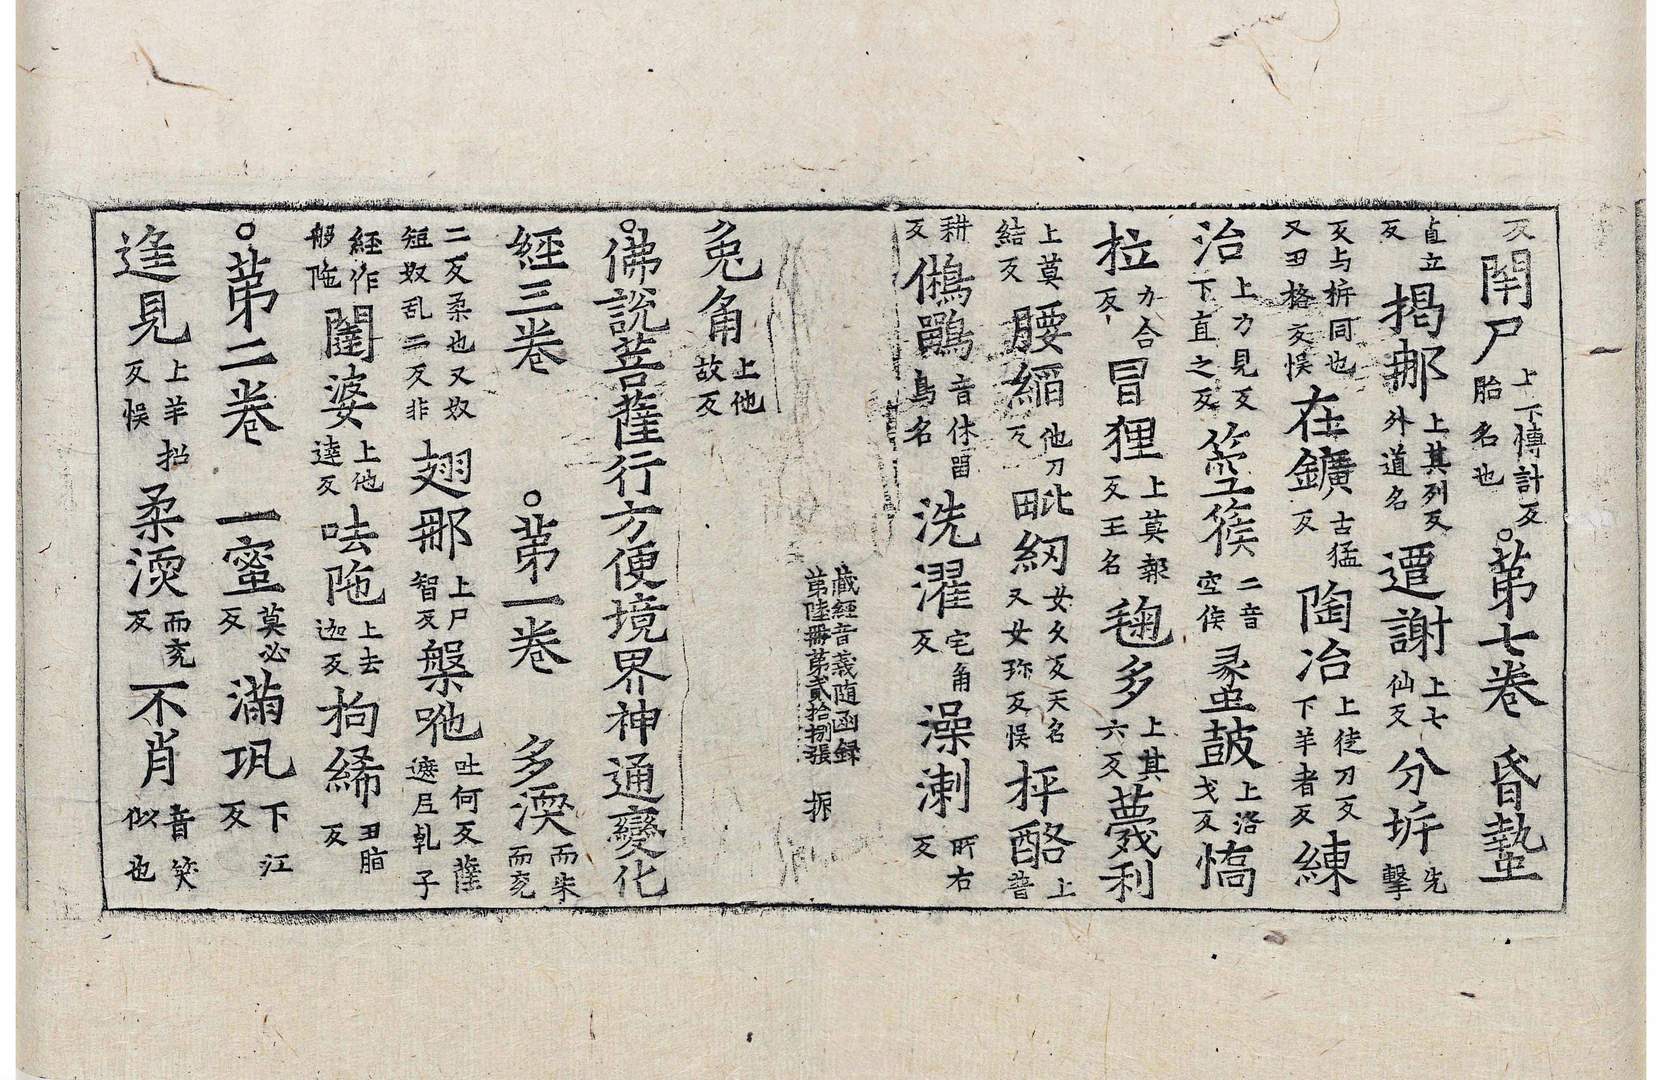 反閇尸上下慱計反胎名也。苐七巻 昏蟄
直立反揭䣂上其列反外道名遷謝上七仙反分㭊先擊
反与㭊同也又田格反悮在鑛古猛反陶冶上徒刀反下羊者反練
治上力見反下直之反箜篌二音空侯彔䖝皷上洛戈反㦥
柆力合反冒狸上莫報反王名毱多上其六反薎利
上莫結反腰縚他刀反毗紉女夂反天名又女珎反悮抨酪上普
耕反鵂鶹音休畱鳥名洗濯宅角反澡漱所右反
藏經音義随函録
苐陸冊苐貳拾捌張 拆
兔角上他故反
。佛說菩薩行方便境界神通變化
經三巻 。苐一巻 多渜而朱而兗
二反柔也又奴短奴乱二反非翅那上尸智反槃吔吐何反薩遮尼乹子
經作䑛陁闥婆上他逹反呿陁上去迦反拘絺丑脂反
。苐二巻 一蜜莫必反滿㺬下江反
逢見上羊招反悮柔渜而兗反不肖音笑似也